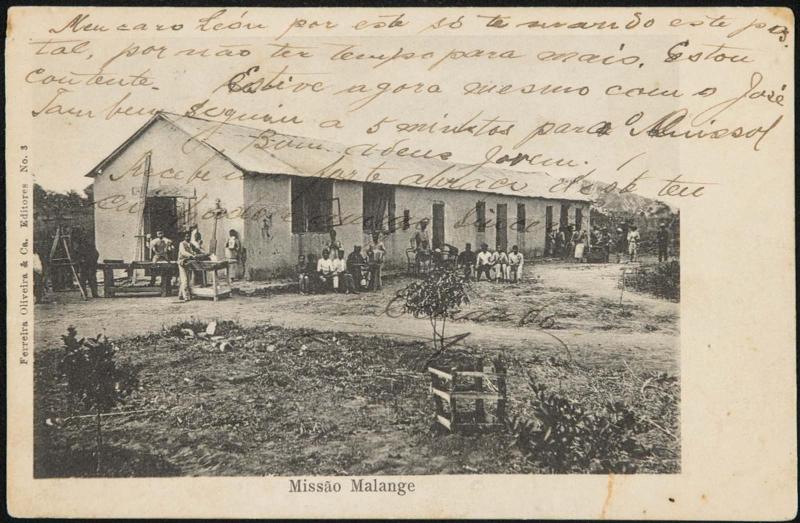 Meu caro León por este só te mando este pos
tal, por não ter tempo para mais. Estou
contente. Estive agora mesmo com o José
Também seguiu a 5 minutos para o
Bom adeus Jovem.
Recebe um forte abraço d'este teu
Ferreira Oliveira & Ca. Editores No. 3
Missão Malange